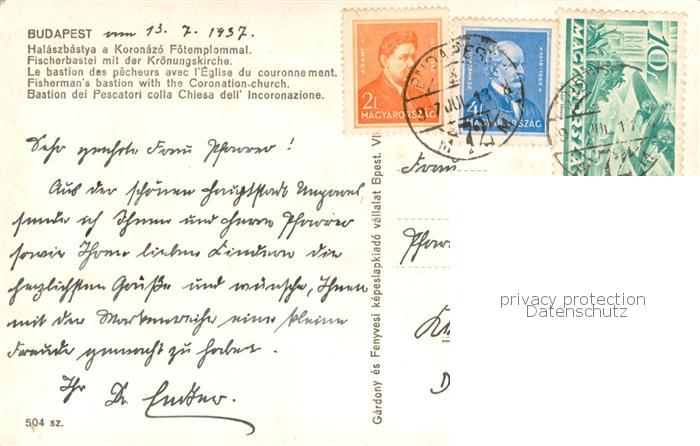 BUDAPEST am 13. 7. 1937.
Halászbástya a Koronázó Főtemplommal.
Fischerbastei mit der Krönungskirche.
Le bastion des pêcheurs avec l'Église du couronnement.
Fisherman's bastion with the Coronation-church.
Bastion dei Pescatori colla Chiesa dell' Incoronazione.
Sehr geehrte Frau Pfarrer!
Aus der schönen Hauptstadt Ungarns
sende ich Ihnen und Herrn Pfarrer
sowie Ihren lieben Kindern die
herzlichsten Grüße und wünsche, Ihnen
mit der Markenreihe eine kleine
Freude gemacht zu haben.
Ihr Dr.
504 sz.
Gárdony és Fenyvesi képeslapkiadó vállalat Bpest. VI
ARANY
2f
MAGYARORSZÁG
BUDAPEST
10f
Frau
Pfarr
privacy protection
Datenschutz